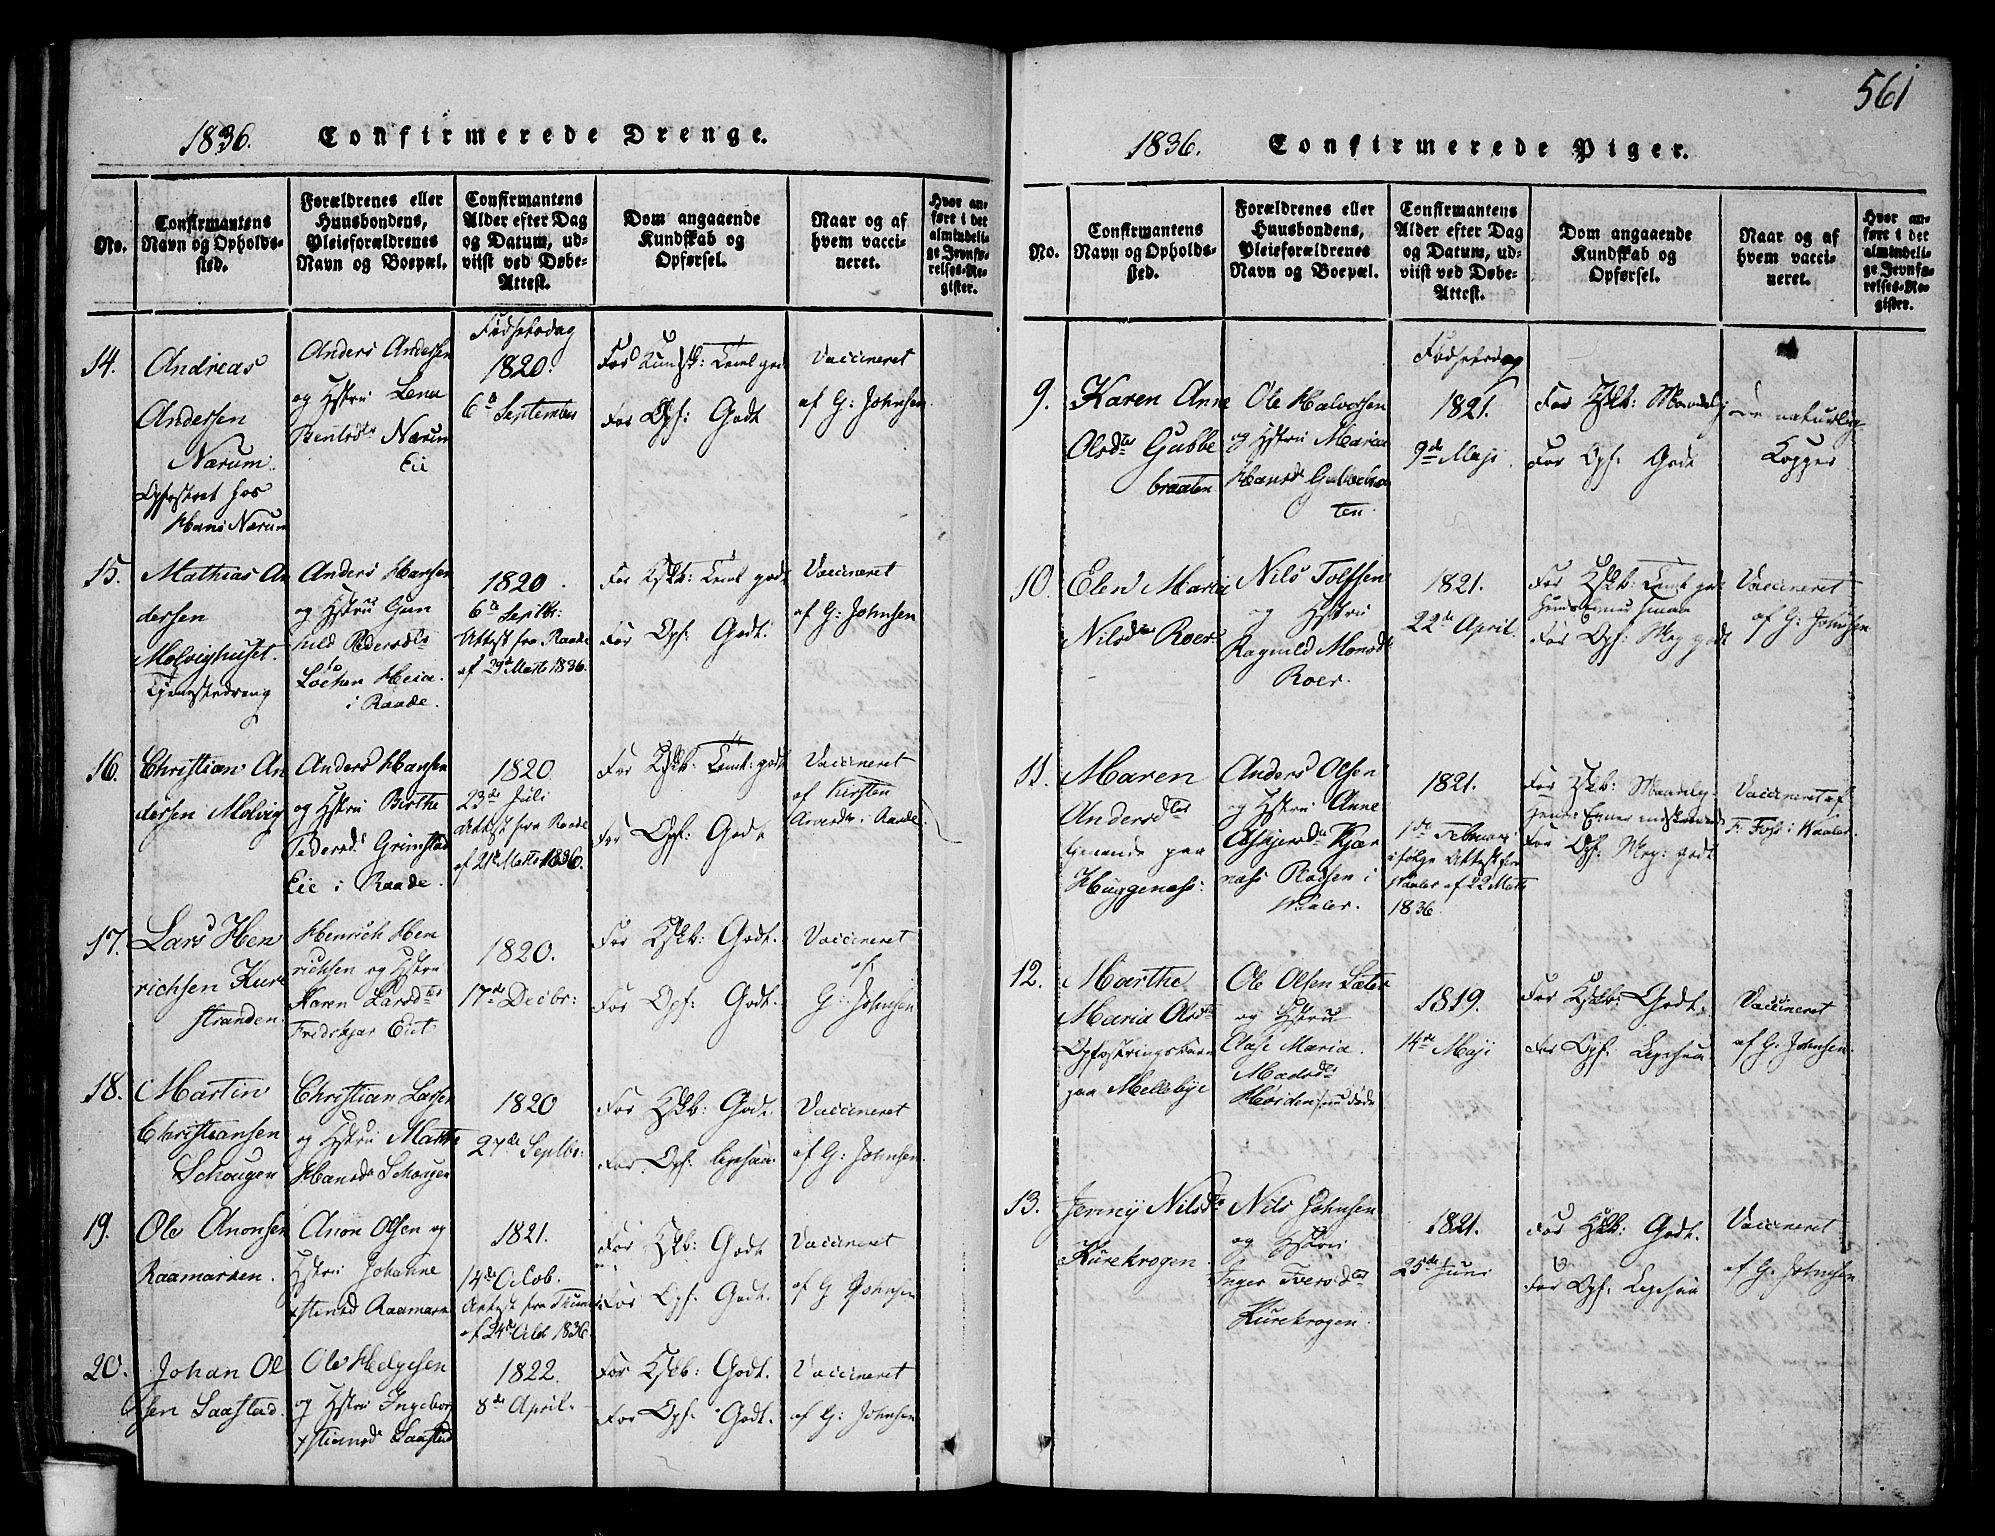 1836. Confirmerede Drenge.
No.
Confirmantens
Navn og Opholds-
sted.
Forældrenes eller
Huusbondens,
Pleieforældrenes
Navn og Boepæl.
Confirmantens
Alder efter Dag
og Datum, ud-
viist ved Døbe-
Attest.
Dom angaaende
Kundskab og
Opførsel.
Naar og af
hvem vacci-
neret.
Hvor an-
føre i det
almindeli-
ge Jevnfø-
relses-Re-
gister.
14.
Andreas
Andersen
Narum.
Opfostret hos
Hans Narum
Anders Andersen
og Hstru Lena
Bentsdtr Narum
Eie
Fødselsdag
1820.
6te September
For Kundsk: Teml. god
For Opf: Godt
Vaccineret
af G: Johnsen.
15.
Mathias An
dersen
Molvighuset.
Tjenestedreng
Anders Hansen
og Hstru Gun
hild Pedersdtr
Løchen Heia
i Raade.
1820.
6te Septbr:
Attest fra Raade
af 29de Marts 1836.
For Kskb: Teml godt
For Opf: Godt.
Vaccineret
af G: Johnsen
16.
Christian An
dersen Molvig
Anders Hansen
og Hstru Birthe
Pedersd: Grimstad
Eie i Raade.
1820.
23de Juli
Attest fra Raade
af 21de Marts 1836.
For Kskb: Teml: godt
For Opf: Godt
Vaccineret
af Kirsten
i Raade.
17.
Lars Hen
richsen Kure
stranden.
Henrich Hen
richsen og Hstru
Karen Larsdtr
Eiet.
1820.
17de Decbr:
For Kskb: Godt.
For Opf: Godt.
Vaccineret
af
G: Johnsen
18.
Martin
Christiansen
Schougen
Christian Larsen
og Hstru Marthe
Hansdtr Schougen
1820
27de Septbr:
For Kskb: Godt.
For Opf: ligesaa.
Vaccineret
af G: Johnsen.
19.
Ole Anonsen
Raamarken.
Anon Olsen og
Hstru Johanne
Raamark
1821.
14de Octob.
Attest fra
af 24de Octb 1836.
For Kskb: Godt
For Opf: Godt.
Vaccineret
af G Johnsen
20.
Johan Ol
sen Saastad.
Ole Helgesen
og Hstru Ingebor
Saastad
1822.
8de April.
For Kskb: Godt.
For Opf: Godt.
Vaccineret
af G: Johnsen
561
1836. Confirmerede Piger.
No.
Confirmantens
Navn og Opholds-
sted.
Forældrenes eller
Huusbondens,
Pleieforældrenes
Navn og Boepæl.
Confirmantens
Alder efter Dag
og Datum, ud-
viist ved Døbe-
Attest.
Dom angaaende
Kundskab og
Opførsel.
Naar og af
hvem vacci-
neret.
Hvor an-
føre i det
almindeli-
ge Jevnfø-
relses-Re-
gister.
9.
Karen Anne
Olsdtr Gubbe
braaten
Ole Halvorsen
og Hstru Maria
Hansd Gubbebra
ten.
Fødselsdag
1821.
9de Maji.
For Kskb: Maadelig
For Opf: Godt
naturlige
Kopper
10.
Elen Maria
Nilsdtr Roer
Nils Tolfsen
og Hstru
Ragnild Monsdtr
Roer.
1821.
22de April.
For Kskb: Teml god
For Opf: Meg godt
Vaccineret
af G: Johnsen
11.
Maren
Andersdtr
tjenende paa
Huggenæs:
Anders Olsen
og Hstru Anne
Kjær
næs Rødsen i
Vaaler.
1821.
1de Februari
ifølge Attest fra
Vaaler af 22 Marts
1836.
For Kskb: Maadelig
For Opf: Meg: godt
Vaccineret af
F. Foss i Vaaler.
12.
Marthe
Maria Olsdtr
Opfostringsbarn
paa Mellebye
Ole Olsen Sæter
og Hstru
Else Maria
Madsdtr
1819.
14de Maji
For Kskb: Godt.
For Opf: Ligesaa
Vaccineret
af G. Johnsen.
13.
Jenny Nilsdtr
Kurekrogen
Nils Johnsen
og Hstru
Inger Iversdtr
Kurekrogen.
1821.
25de Juni
For Kskb: Godt.
For Opf: Ligesaa
Vaccineret
af G: Johnsen